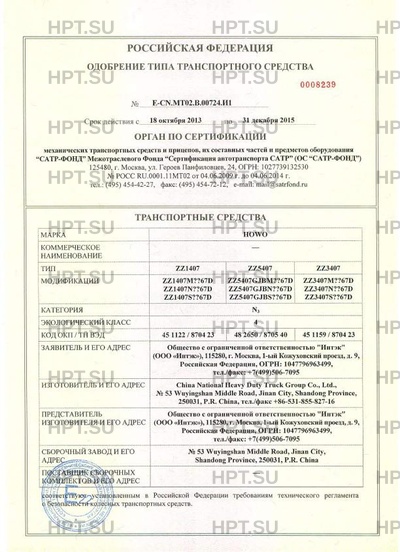 РОССИЙСКАЯ ФЕДЕРАЦИЯ
ОДОБРЕНИЕ ТИПА ТРАНСПОРТНОГО СРЕДСТВА
0008239
№ E-CN.MT02.B.00724.И1
Срок действия с 18 октября 2013 по 31 декабря 2015
ОРГАН ПО СЕРТИФИКАЦИИ
механических транспортных средств и прицепов, их составных частей и предметов оборудования
"САТР-ФОНД" Межотраслевого Фонда "Сертификация автотранспорта САТР" (ОС "САТР-ФОНД")
125480, г. Москва, ул. Героев Панфиловцев, 24, ОГРН: 1027739132530
№ РОСС RU.0001.11МТ02 от 04.06.2009 г. до 04.06.2014 г.
тел.: (495) 454-42-27, факс: (495) 454-72-12, e-mail: mail@satrfond.ru
ТРАНСПОРТНЫЕ СРЕДСТВА
МАРКА HOWO
КОММЕРЧЕСКОЕ —
НАИМЕНОВАНИЕ
ТИП ZZ1407 ZZ5407 ZZ3407
МОДИФИКАЦИИ ZZ1407M??67D ZZ5407GJBM??67D ZZ3407M??67D
ZZ1407N??67D ZZ5407GJBN??67D ZZ3407N??67D
ZZ1407S??67D ZZ5407GJBS??67D ZZ3407S??67D
КАТЕГОРИЯ N₃
ЭКОЛОГИЧЕСКИЙ КЛАСС 4
КОД ОКП / ТН ВЭД 45 1122 / 8704 23 48 2650 / 8705 40 45 1159 / 8704 23
ЗАЯВИТЕЛЬ И ЕГО АДРЕС Общество с ограниченной ответственностью "Интэк"
(ООО «Интэк»), 115280, г. Москва, 1-ый Кожуховский проезд, д. 9,
Российская Федерация, ОГРН: 1047796963499,
тел./факс: +7(499)506-7095
ИЗГОТОВИТЕЛЬ И ЕГО АДРЕС China National Heavy Duty Truck Group Co., Ltd.,
№ 53 Wuyingshan Middle Road, Jinan City, Shandong Province,
250031, P.R. China, тел./факс +86-531-855-827-16
ПРЕДСТАВИТЕЛЬ Общество с ограниченной ответственностью "Интэк"
ИЗГОТОВИТЕЛЯ И ЕГО АДРЕС (ООО «Интэк»), 115280, г. Москва, 1-ый Кожуховский проезд, д. 9,
Российская Федерация, ОГРН: 1047796963499,
тел./факс: +7(499)506-7095
СБОРОЧНЫЙ ЗАВОД И ЕГО № 53 Wuyingshan Middle Road, Jinan City,
АДРЕС Shandong Province, 250031, P.R. China
ПОСТАВЩИК СБОРОЧНЫХ —
КОМПЛЕКТОВ И ЕГО АДРЕС
соответствует установленным в Российской Федерации требованиям технического регламента
о безопасности колесных транспортных средств.
HPT.SU